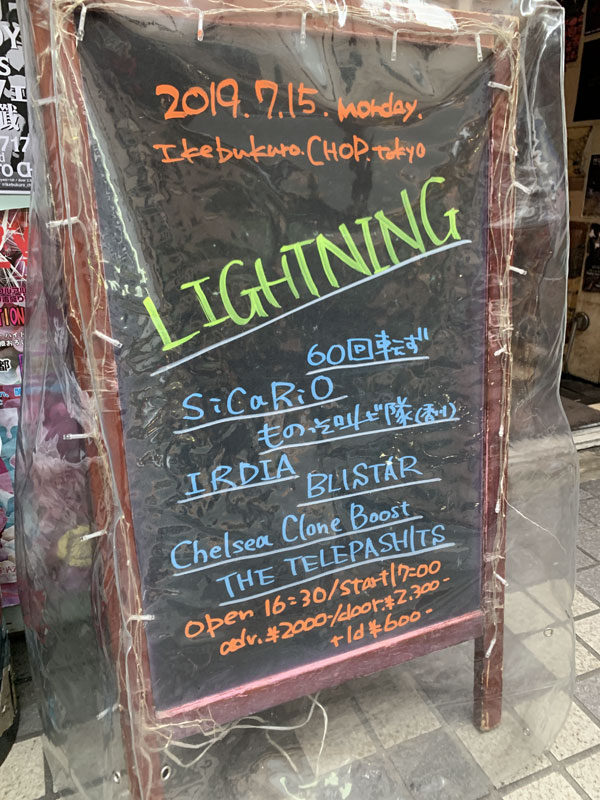 2019.7.15. Monday.
Ikebukuro.CHOP.tokyo
LIGHTNING
60回転ず
SiCaRiO
IRDIA
BLISTAR
Chelsea Clone Boost
THE TELEPASHITS
open 16:30/start17:00
adv.¥2000-/door.¥2,300-
+1d¥600-
717